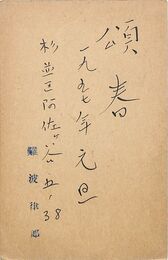 頌春
一九五七年元旦
杉並区阿佐ヶ谷五ノ38
難波律郎